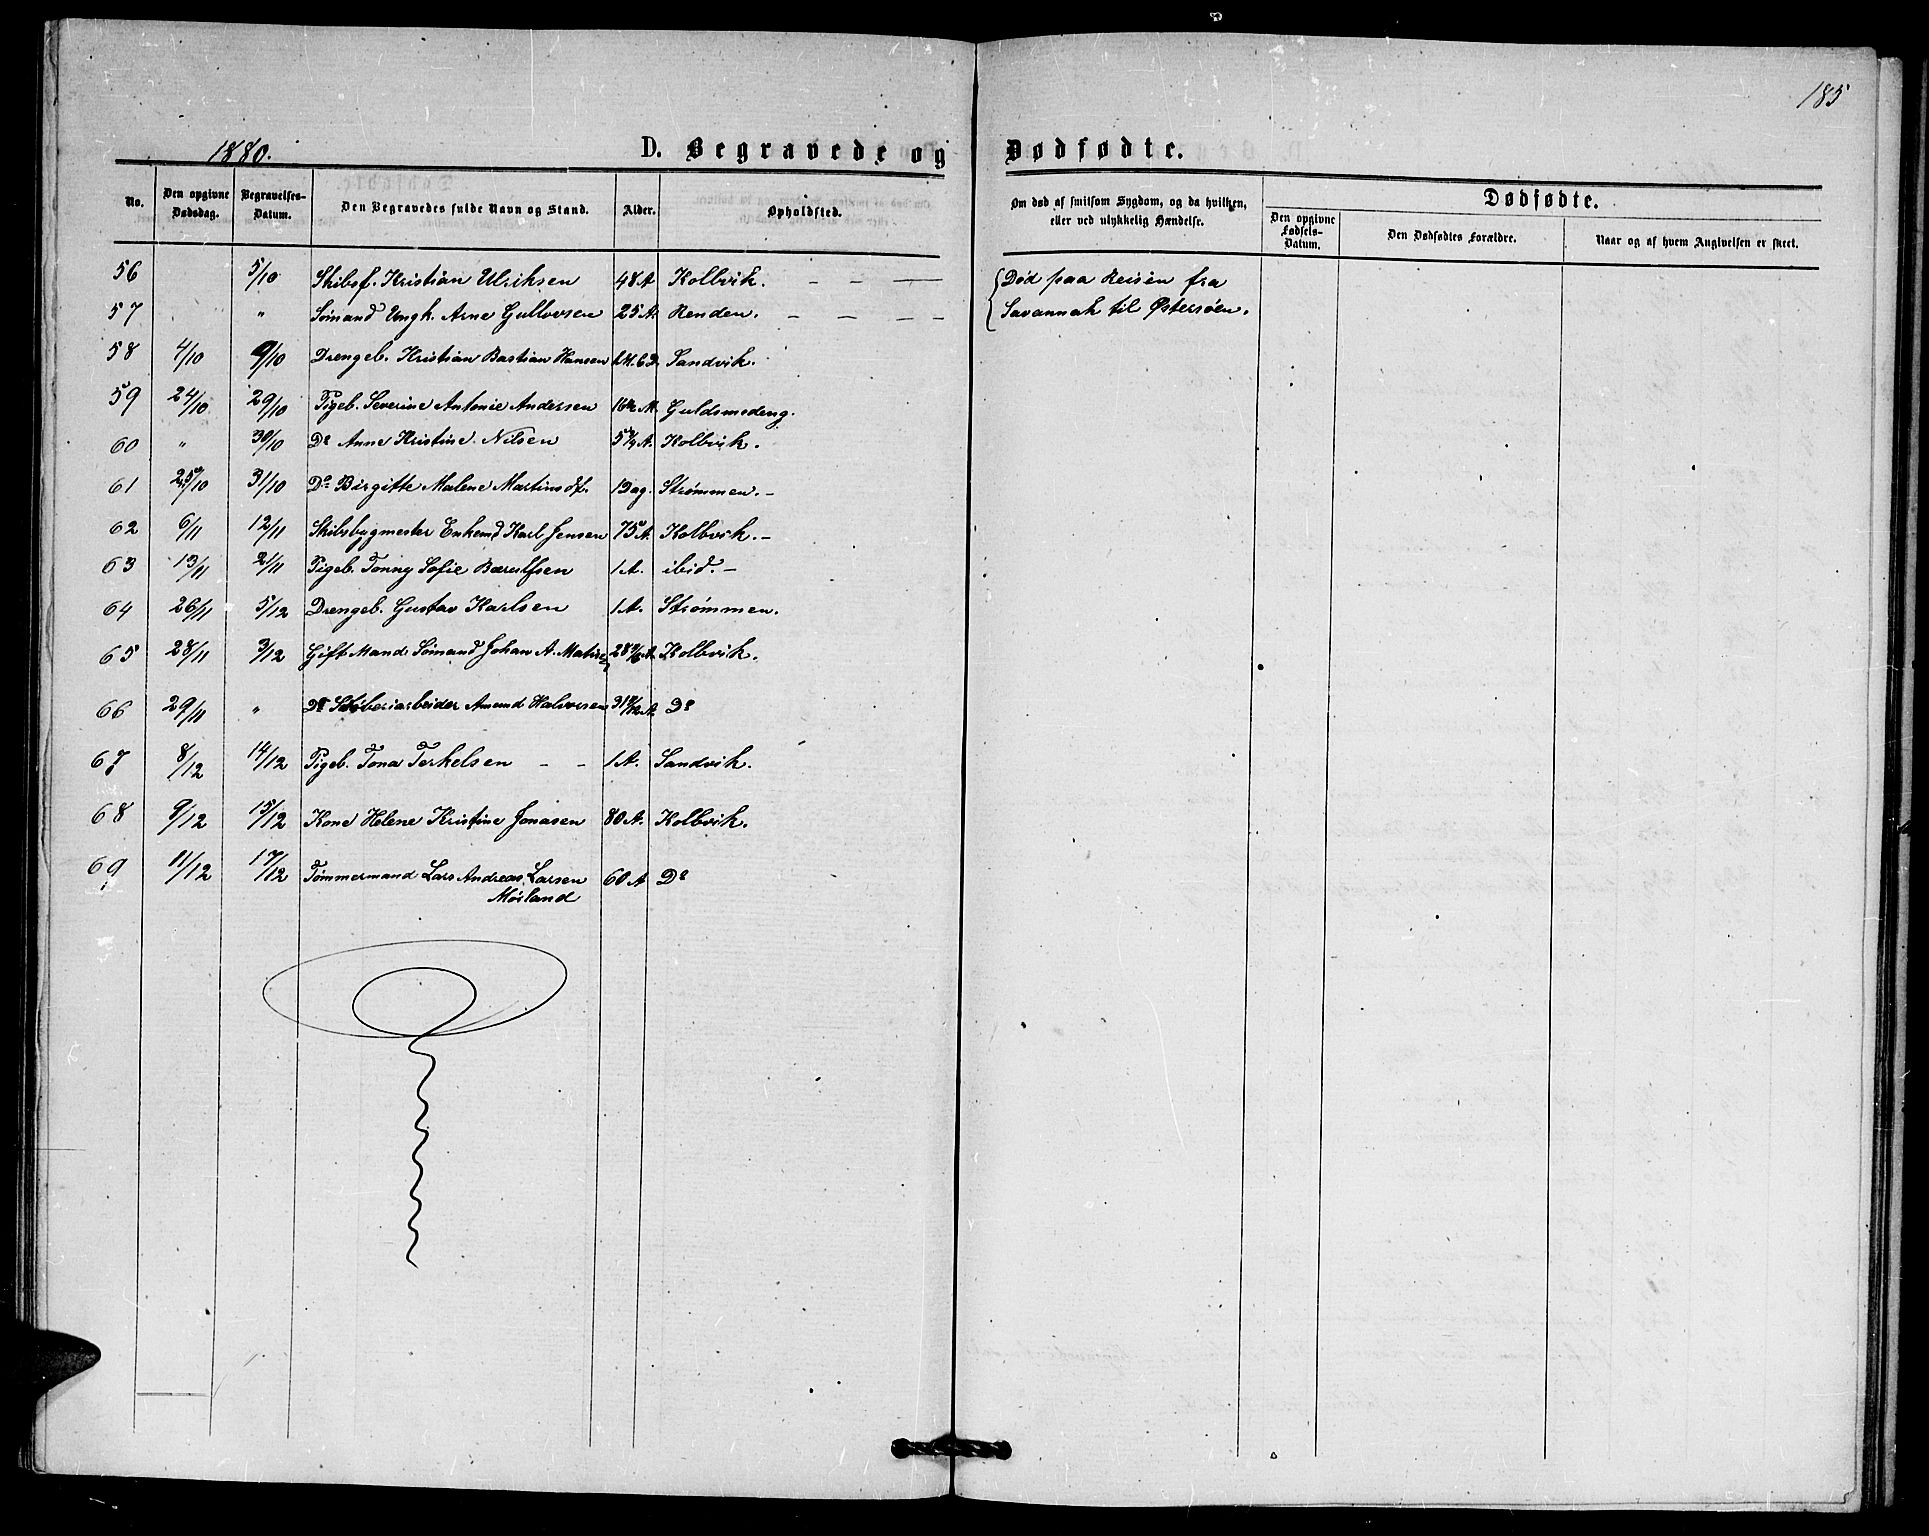 185
1880.
D. Begravede og Dødfødte.
No.
Den opgivne Dødsdag.
Begravelses-Datum.
Den Begravedes fulde Navn og Stand.
Alder.
Opholdsted.
Om død af smitsom Sygdom, og da hvilken, eller ved ulykkelig Hændelse.
Dødfødte.
Den opgivne Fødsels-Datum.
Den Dødfødtes Forældre.
Naar og af hvem Angivelsen er skeet.
56 5/10 Skibsf. Kristian Ulriksen 48 A Kolbvik. – – — {Død paa Reisen fra
57 " Sømand Ungk. Arne Gullovsen 25 A. Renden. – — — — Savannah til Østersøen.
58 4/10 9/10 Drengeb. Kristian Bastian Hansen 6 D. Sandvik.
59 24/10 29/10 Pigeb. Severine Antonie Andersen M. Guldsmedeng.
60 " 30/10 Do Anne Kristine Nilsen A. Kolbvik.
61 25/10 31/10 Do Birgitte Malene Martinsdt. 1 Dag. Strømmen. –
62 6/11 12/11 Skibsbygmester Enkemd Karl Jensen 75 A. Kolbvik. –
63 13/11 2/11 Pigeb. Tonny Sofie 1 A. ibid. –
64 26/11 5/12 Drengeb. Gustav Karlsen 1 A. Strømmen.
65 28/11 3/12 Gift Mand Sømand Johan A. Kolbvik.
66 29/11 " Do Amund Halvorsen Do
67 8/12 14/12 Pigeb. Tona Terkelsen – – 1 A. Sandvik.
68 9/12 15/12 Kone Helene Kristine Jonasen 80 A. Kolbvik.
69 11/12 17/12 Tømmermand Lars Andreas Larsen 60 A Do
Møsland